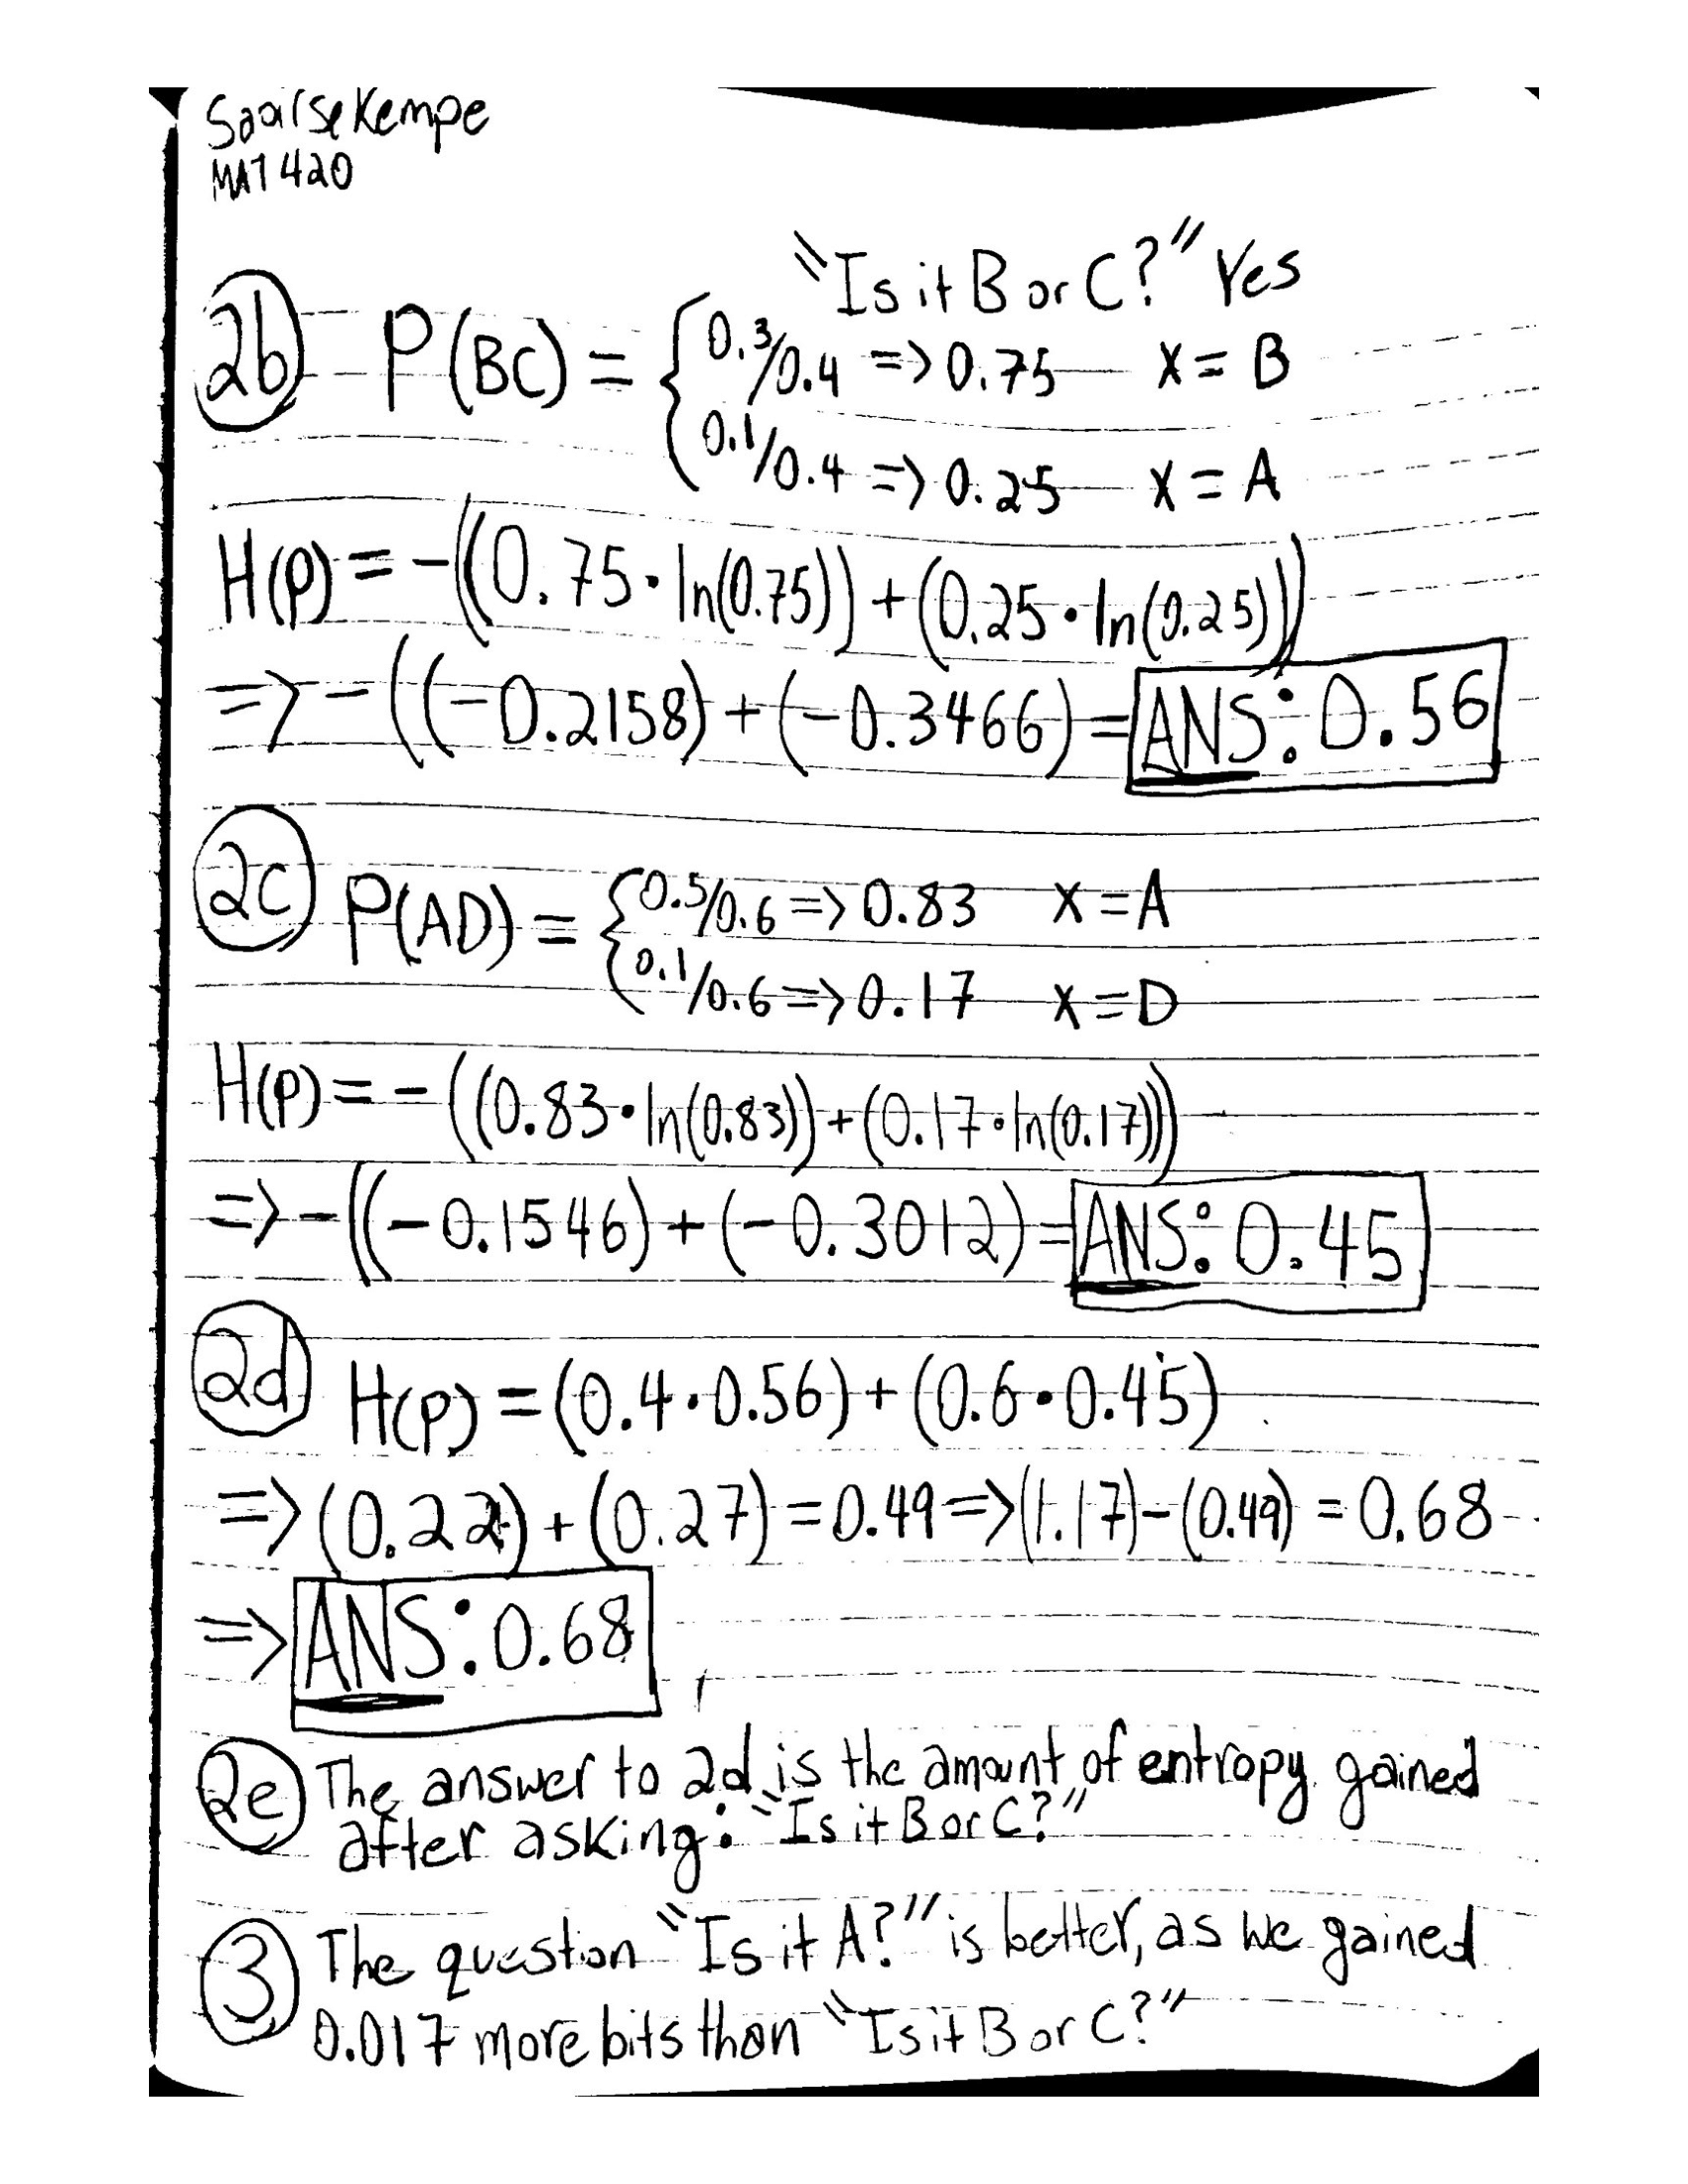 Saoirse Kempe
MAT 420
"Is it B or C?" Yes
2b P(BC) = { 0.3/0.4 => 0.75 x = B
0.1/0.4 => 0.25 x = A
H(p) = -((0.75·ln(0.75)) + (0.25·ln(0.25)))
=> -((-0.2158) + (-0.3466) = ANS: 0.56
2c P(AD) = { 0.5/0.6 => 0.83 x = A
0.1/0.6 => 0.17 x = D
H(p) = -((0.83·ln(0.83)) + (0.17·ln(0.17)))
=> -((-0.1546) + (-0.3012) = ANS: 0.45
2d H(p) = (0.4·0.56) + (0.6·0.45)
=> (0.22) + (0.27) = 0.49 => (1.17) - (0.49) = 0.68
=> ANS: 0.68
2e The answer to 2d is the amount of entropy gained
after asking: "Is it B or C?"
3 The question "Is it A?" is better, as we gained
0.017 more bits than "Is it B or C?"